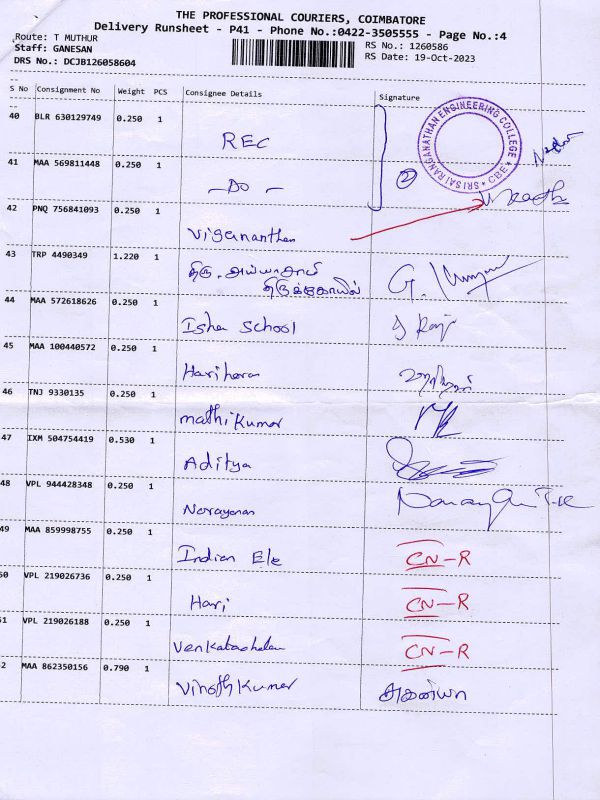 THE PROFESSIONAL COURIERS, COIMBATORE
Delivery Runsheet - P41 - Phone No.:0422-3505555 - Page No.:4
Route: T MUTHUR
RS No.: 1260586
Staff: GANESAN
RS Date: 19-Oct-2023
DRS No.: DCJB126058604
S No Consignment No Weight PCS Consignee Details Signature
40 BLR 630129749 0.250 1
REC
SRI SAI RANGANATHAN ENGINEERING COLLEGE * CBE *
41 MAA 569811448 0.250 1
- DO -
2
42 PNQ 756841093 0.250 1
Vigernanthan
43 TRP 4490349 1.220 1
திரு. அய்யாசாமி
திருக்கோயில்
44 MAA 572618626 0.250 1
Isha School
45 MAA 100440572 0.250 1
Hariharan
46 TNJ 9330135 0.250 1
mathikumar
47 IXM 504754419 0.530 1
Aditya
48 VPL 944428348 0.250 1
Narayanan
49 MAA 859998755 0.250 1
Indian Ele CN-R
50 VPL 219026736 0.250 1
Hari CN-R
51 VPL 219026188 0.250 1
Venkatachalam CN-R
52 MAA 862350156 0.790 1
Vinoth Kumar